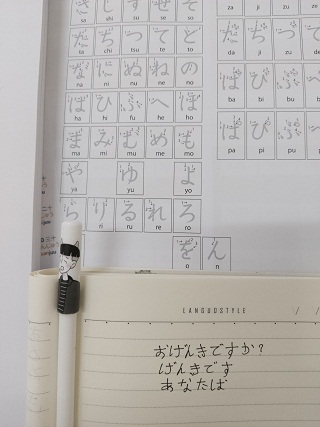 さ し す せ そ
sa shi su se so za ji zu
た ち つ て と だ ぢ づ で
ta chi tsu te to da ji zu de
な に ぬ ね の
na ni nu ne no
は ひ ふ へ ほ ば び ぶ
ha hi fu he ho ba bi bu
ま み む め も ぱ ぴ ぷ
ma mi mu me mo pa pi pu
や ゆ よ
ya yu yo
ら り る れ ろ
ri ru re ro
を ん
o n
LANGUOSTYLE / /
おげんきですか?
げんきです
あなたば